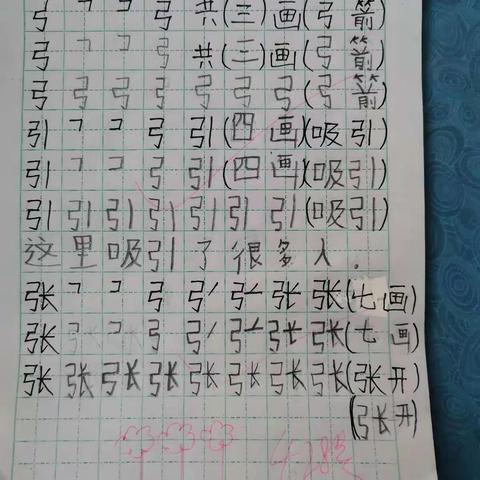 弓 ㇕ コ 弓 共(三)画(弓箭)
弓 ㇕ コ 弓 共(三)画(弓箭)
弓 弓 弓 弓 弓 弓 弓 (弓箭)
引 ㇕ コ 弓 引(四画)(吸引)
引 ㇕ コ 弓 引(四画)(吸引)
引 引 引 引 引 引 引 (吸引)
这里吸引了很多人.
张 ㇕ コ 弓 弓丿 弓 张 张(七画)
张 ㇕ コ 弓 弓丿 弓 张 张(七画)
张 张 张 张 张 张 张 张(张开)
(张开)